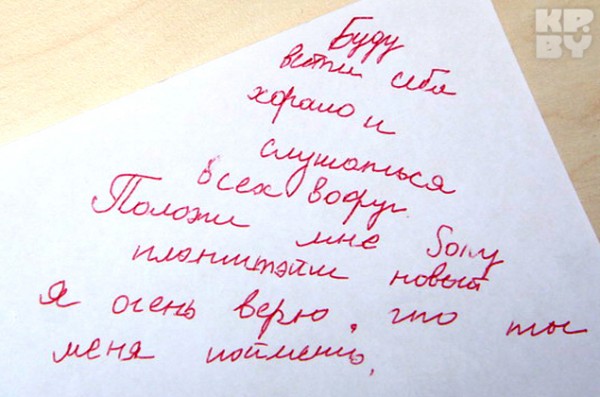 KP.
BY
Буду
вести себя
хорошо и
слушаться
всех вокруг.
Положи мне Sony
плэнстэйшн новый
Я очень верю, что ты
меня поймешь.